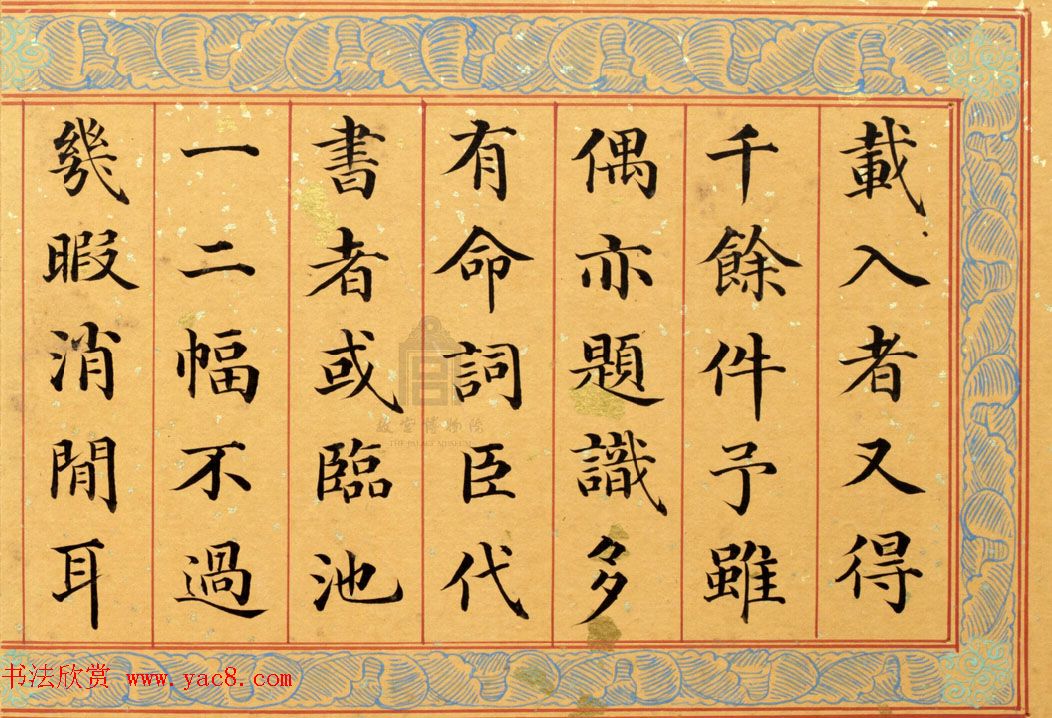 載入者又得
千餘件予雖
偶亦題識多
有命詞臣代
書者或臨池
一二幅不過
幾暇消閒耳
故宫博物院
THE PALACE MUSEUM
书法欣赏 www.yac8.com